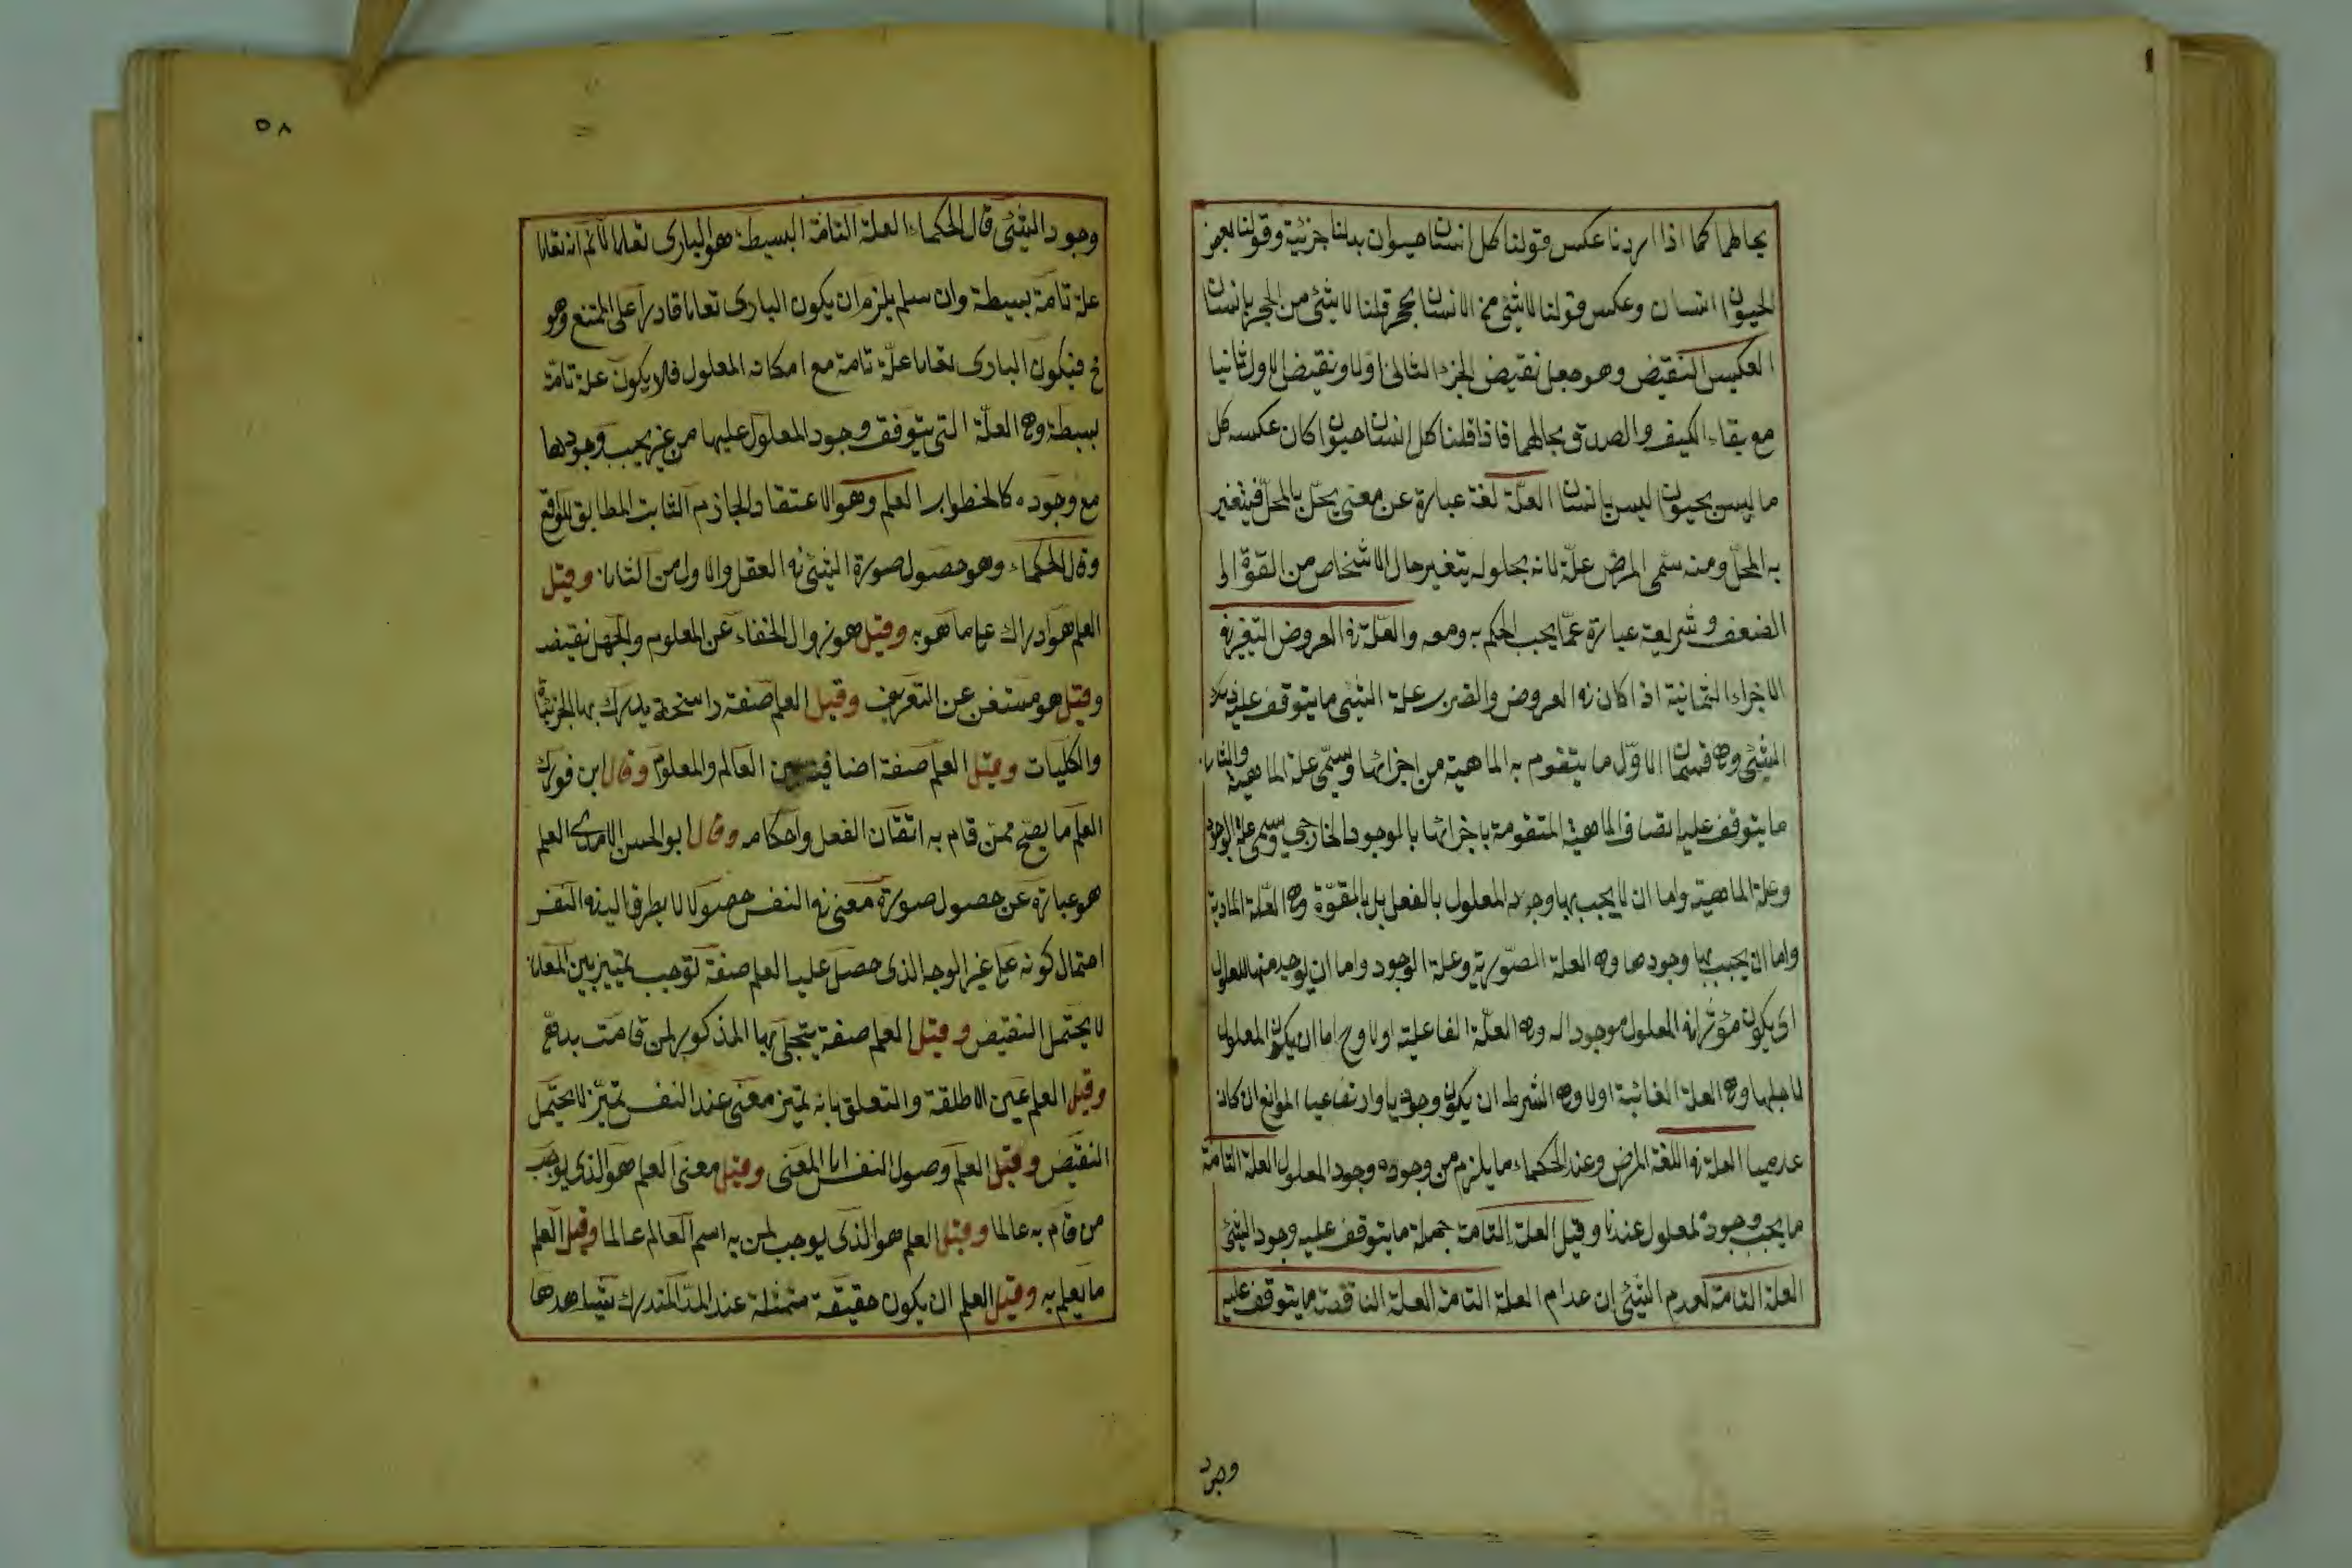 بحالهما كما اذا اردنا عكس قولنا كل انسان حيوان بدلنا جزئية وقولنا بعض
الحيوان انسان وعكس قولنا لا شئ من الانسان بحجر قلنا لا شئ من الحجر بانسان
العكس النقيض وهو جعل نقيض الجزء الثانى اولا ونقيض الاول ثانيا
مع بقاء الكيف والصدق بحالهما فاذا قلنا كل انسان حيوان كان عكسه كل
ما ليس بحيوان ليس بانسان العلة لغة عبارة عن معنى يحل بالمحل فيتغير
به المحل ومنه سمى المرض علة لانه بحلوله يتغير حال الاشخاص من القوة الى
الضعف وشريعة عبارة عما يجب الحكم به ومعه والعلة فى العروض التغير فى
الاجزاء الثمانية اذا كان فى العروض والضرب علة الشئ ما يتوقف عليه ذلك
الشئ وهى قسمان الاول ما يتقوم به الماهية من اجزائها ويسمى علة الماهية والثانى
ما يتوقف عليه اتصاف الماهية المتقومة باجزائها بالوجود الخارجى ويسمى علة الوجود
وعلة الماهية واما ان لا يجب بها وجود المعلول بالفعل بل بالقوة وهى العلة المادية
واما ان يجب بها وجودها وهى العلة الصورية وعلة الوجود واما ان يوجد منها المعلول
اى يكون مؤثرا فى المعلول موجودا له وهى العلة الفاعلية اولا وح اما ان يكون المعلول
لاجلها وهى العلة الغائية اولا وهى الشرط ان يكون وجوديا وارتفاعيا الموانع ان كان
عدميا العلة فى اللغة المرض وعند الحكماء ما يلزم من وجوده وجود المعلول العلة التامة
ما يجب وجود المعلول عندنا وقيل العلة التامة جملة ما يتوقف عليه وجود الشئ
العلة التامة لعدم الشئ ان عدام العلة التامة العلة الناقصة ما يتوقف عليه
وجود
٥٨
وجود الشئ قال الحكماء العلة التامة البسيطة هو البارى تعالى لا نم انه تعالى
علة تامة بسيطة وان سلم يلزم ان يكون البارى تعالى قادرا على الممتنع وهو
مح فيكون البارى تعالى علة تامة مع امكانه المعلول فلا يكون علة تامة
بسيطة وهى العلة التى يتوقف وجود المعلول عليها من غير يجب وجودها
مع وجوده كالخطوات العلم وهو الاعتقاد الجازم الثابت المطابق للواقع
وقال الحكماء وهو حصول صورة الشئ فى العقل والاول من الثانى وقيل
العلم هو ادراك على ما هو به وقيل هو زوال الخفاء عن المعلوم والجهل نقيضه
وقيل هو مستغن عن التعريف وقيل العلم صفة راسخة يدرك بها الجزئيات
والكليات وقيل العلم صفة اضافية بين العالم والمعلوم وقال ابن فورك
العلم ما يصح ممن قام به اتقان الفعل واحكامه وقال ابو الحسن الامدى العلم
هو عبارة عن حصول صورة معنى فى النفس حصولا لا يطرق اليه فى النفس
احتمال كونه على غير الوجه الذى حصل عليه العلم صفة توجب تمييز بين المعانى
لا يحتمل النقيض وقيل العلم صفة يتجلى بها المذكور لمن قامت به
وقيل العلم عين الاطلقة والتعلق بانه تميز معنى عند النفس تميز لا يحتمل
النقيض وقيل العلم وصول النفس الى المعنى وقيل معنى العلم هو الذى يوجب
من قام به عالما وقيل العلم هو الذى يوجب لمن به اسم العالم عالما وقيل العلم
ما يعلم به وقيل العلم ان يكون حقيقة متمثلة عند المدرك يشاهدها